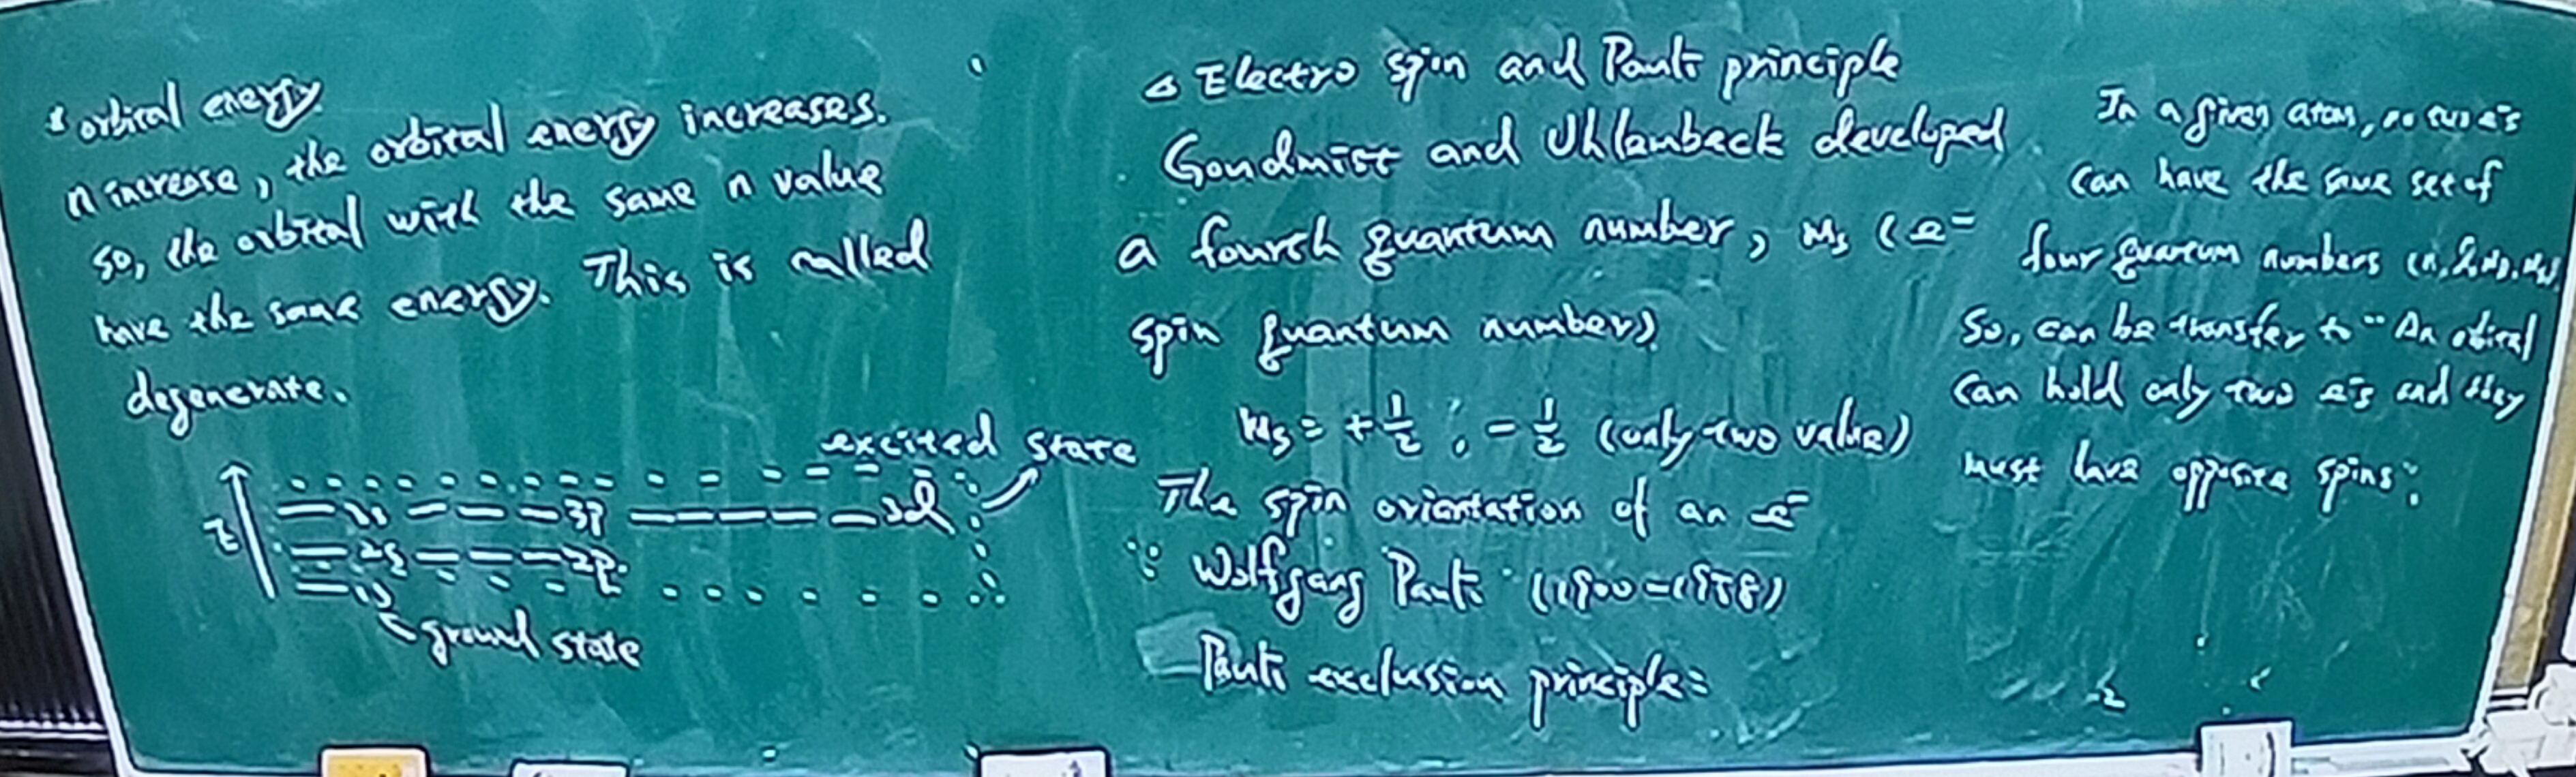 * orbital energy
n increase, the orbital energy increases.
so, the orbital with the same n value
have the same energy. This is called
degenerate.
excited state
E
3s 3p 3d
2s 2p
1s
ground state
△ Electro spin and Pauli principle
Goudmist and Uhlenbeck developed
a fourth quantum number, ms (e⁻
spin quantum number)
ms = +1/2, -1/2 (only two value)
The spin orientation of an e⁻
Wolfgang Pauli (1900-1958)
Pauli exclusion principle:
In a given atom, no two e⁻s
can have the same set of
four quantum numbers (n, l, ml, ms)
So, can be transfer to "An obital
can hold only two e⁻s and they
must have opposite spins."